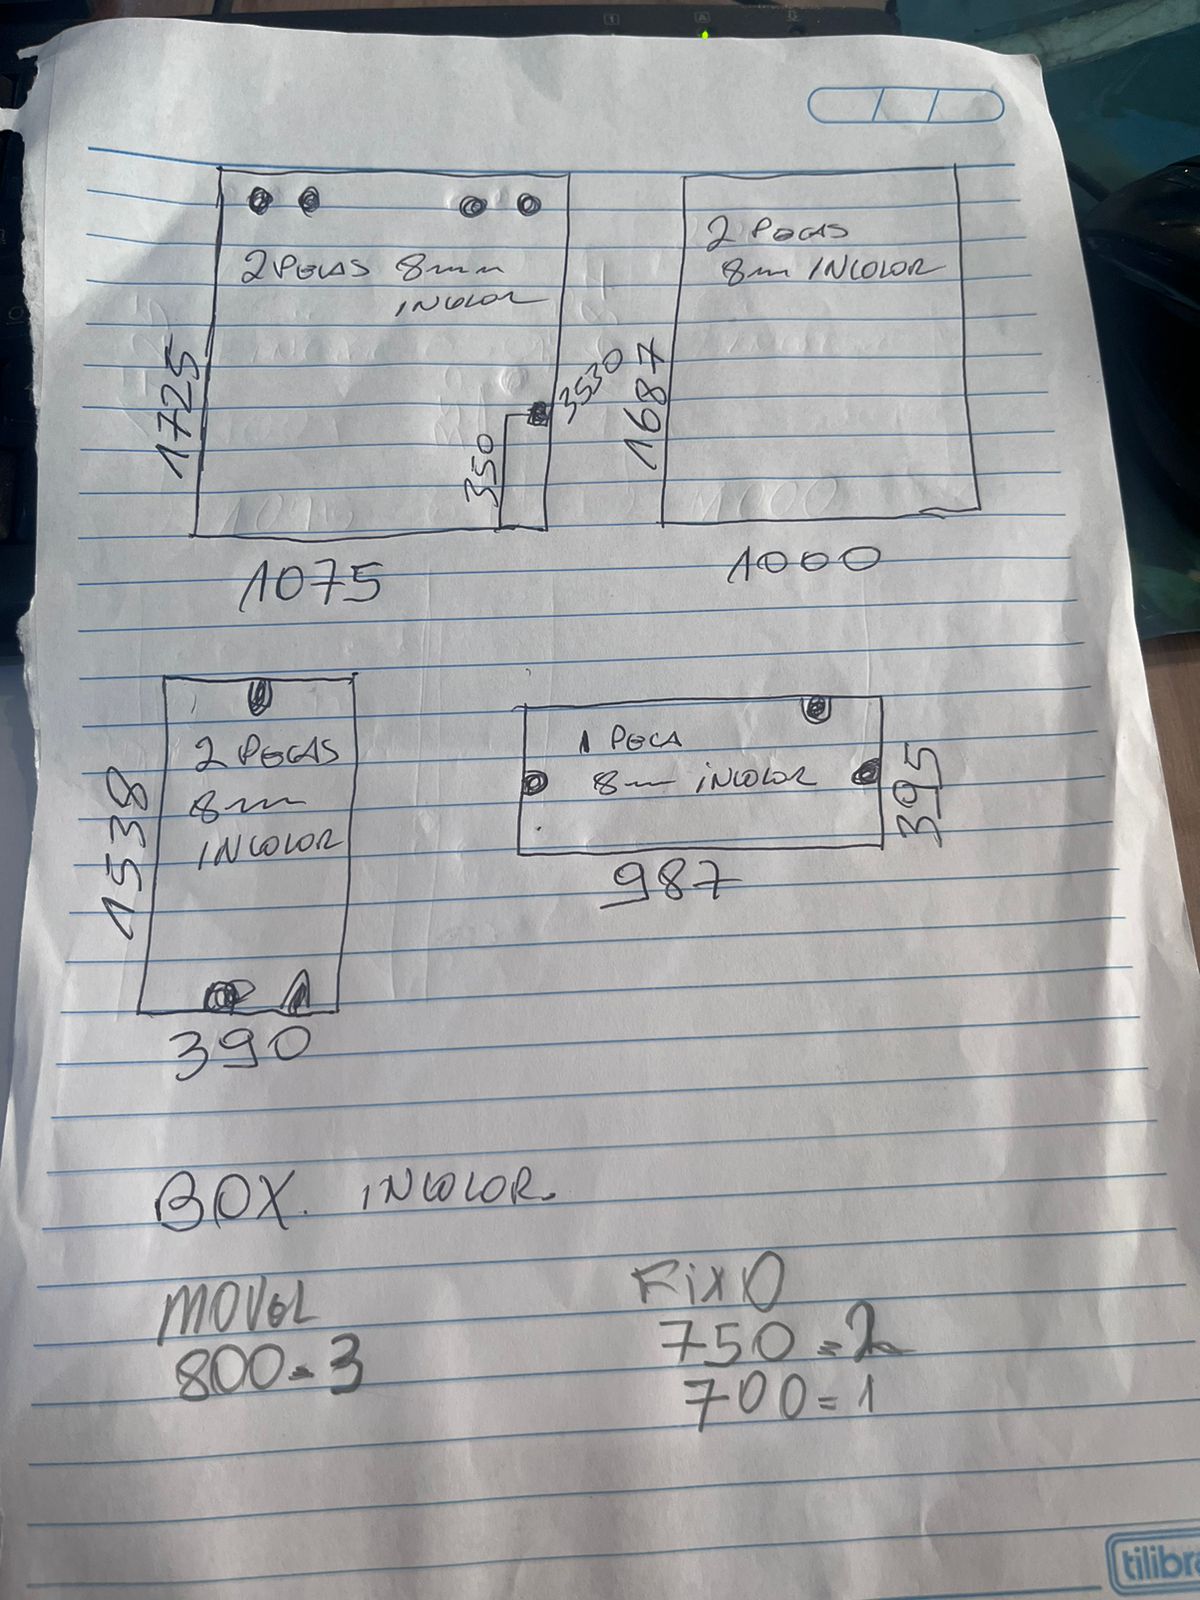 2 PECAS 8mm
INCOLOR
1725
350
3530
1075
2 PECAS
8mm INCOLOR
1687
1000
2 PECAS
8mm
INCOLOR
1538
390
1 PECA
8mm INCOLOR
395
987
BOX. INCOLOR.
MOVEL
800=3
FIXO
750=2
700=1
tilibra